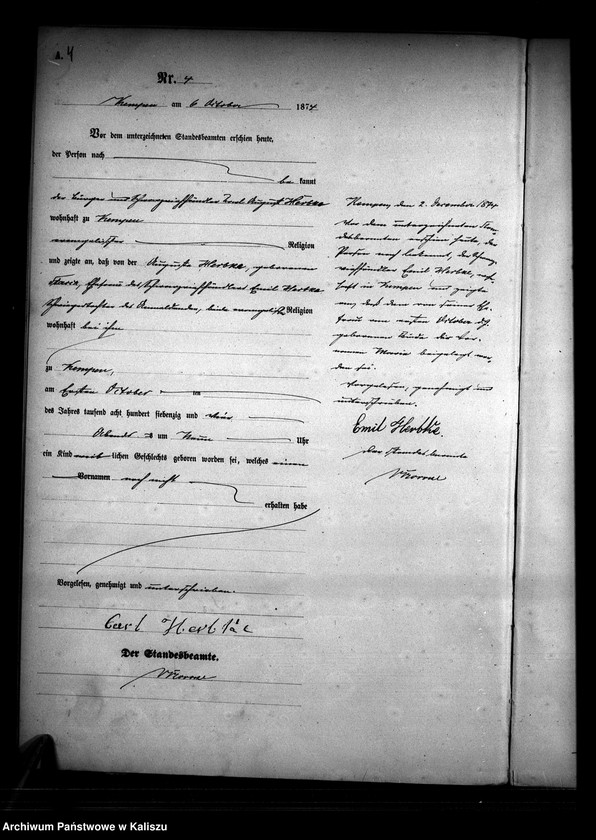 4
Nr. 4
Kempen am 6 October 1874
Vor dem unterzeichneten Standesbeamten erschien heute,
der Person nach
be kannt
der Bürger und August Herbke
wohnhaft zu Kempen
evangelischer Religion
und zeigte an, daß von der Augusta Herbke, geborenen
Ehefrau des Emil Herbke
des Anmeldenden, beide evangelisch Religion
wohnhaft bei ihm
zu Kempen,
am Ersten October
des Jahres tausend acht hundert siebenzig und vier
Abends um Neun Uhr
ein Kind weib lichen Geschlechts geboren worden sei, welches einen
Vornamen noch nicht
erhalten habe
Vorgelesen, genehmigt und unterschrieben.
Carl Herbke
Der Standesbeamte.
Kempen, den 2. Dezember 1874
Vor dem unterzeichneten Stan-
desbeamten erschien heute, der
Person nach bekannt, der
Emil Herbke, wohn-
haft in Kempen und zeigte
an, daß dem von seiner Ehe-
frau am ersten October d. J.
geborenen Kinde der Vor-
namen Maria beigelegt wor-
den sei.
Vorgelesen, genehmigt und
unterschrieben.
Emil Herbke.
Der Standesbeamte
Archiwum Państwowe w Kaliszu